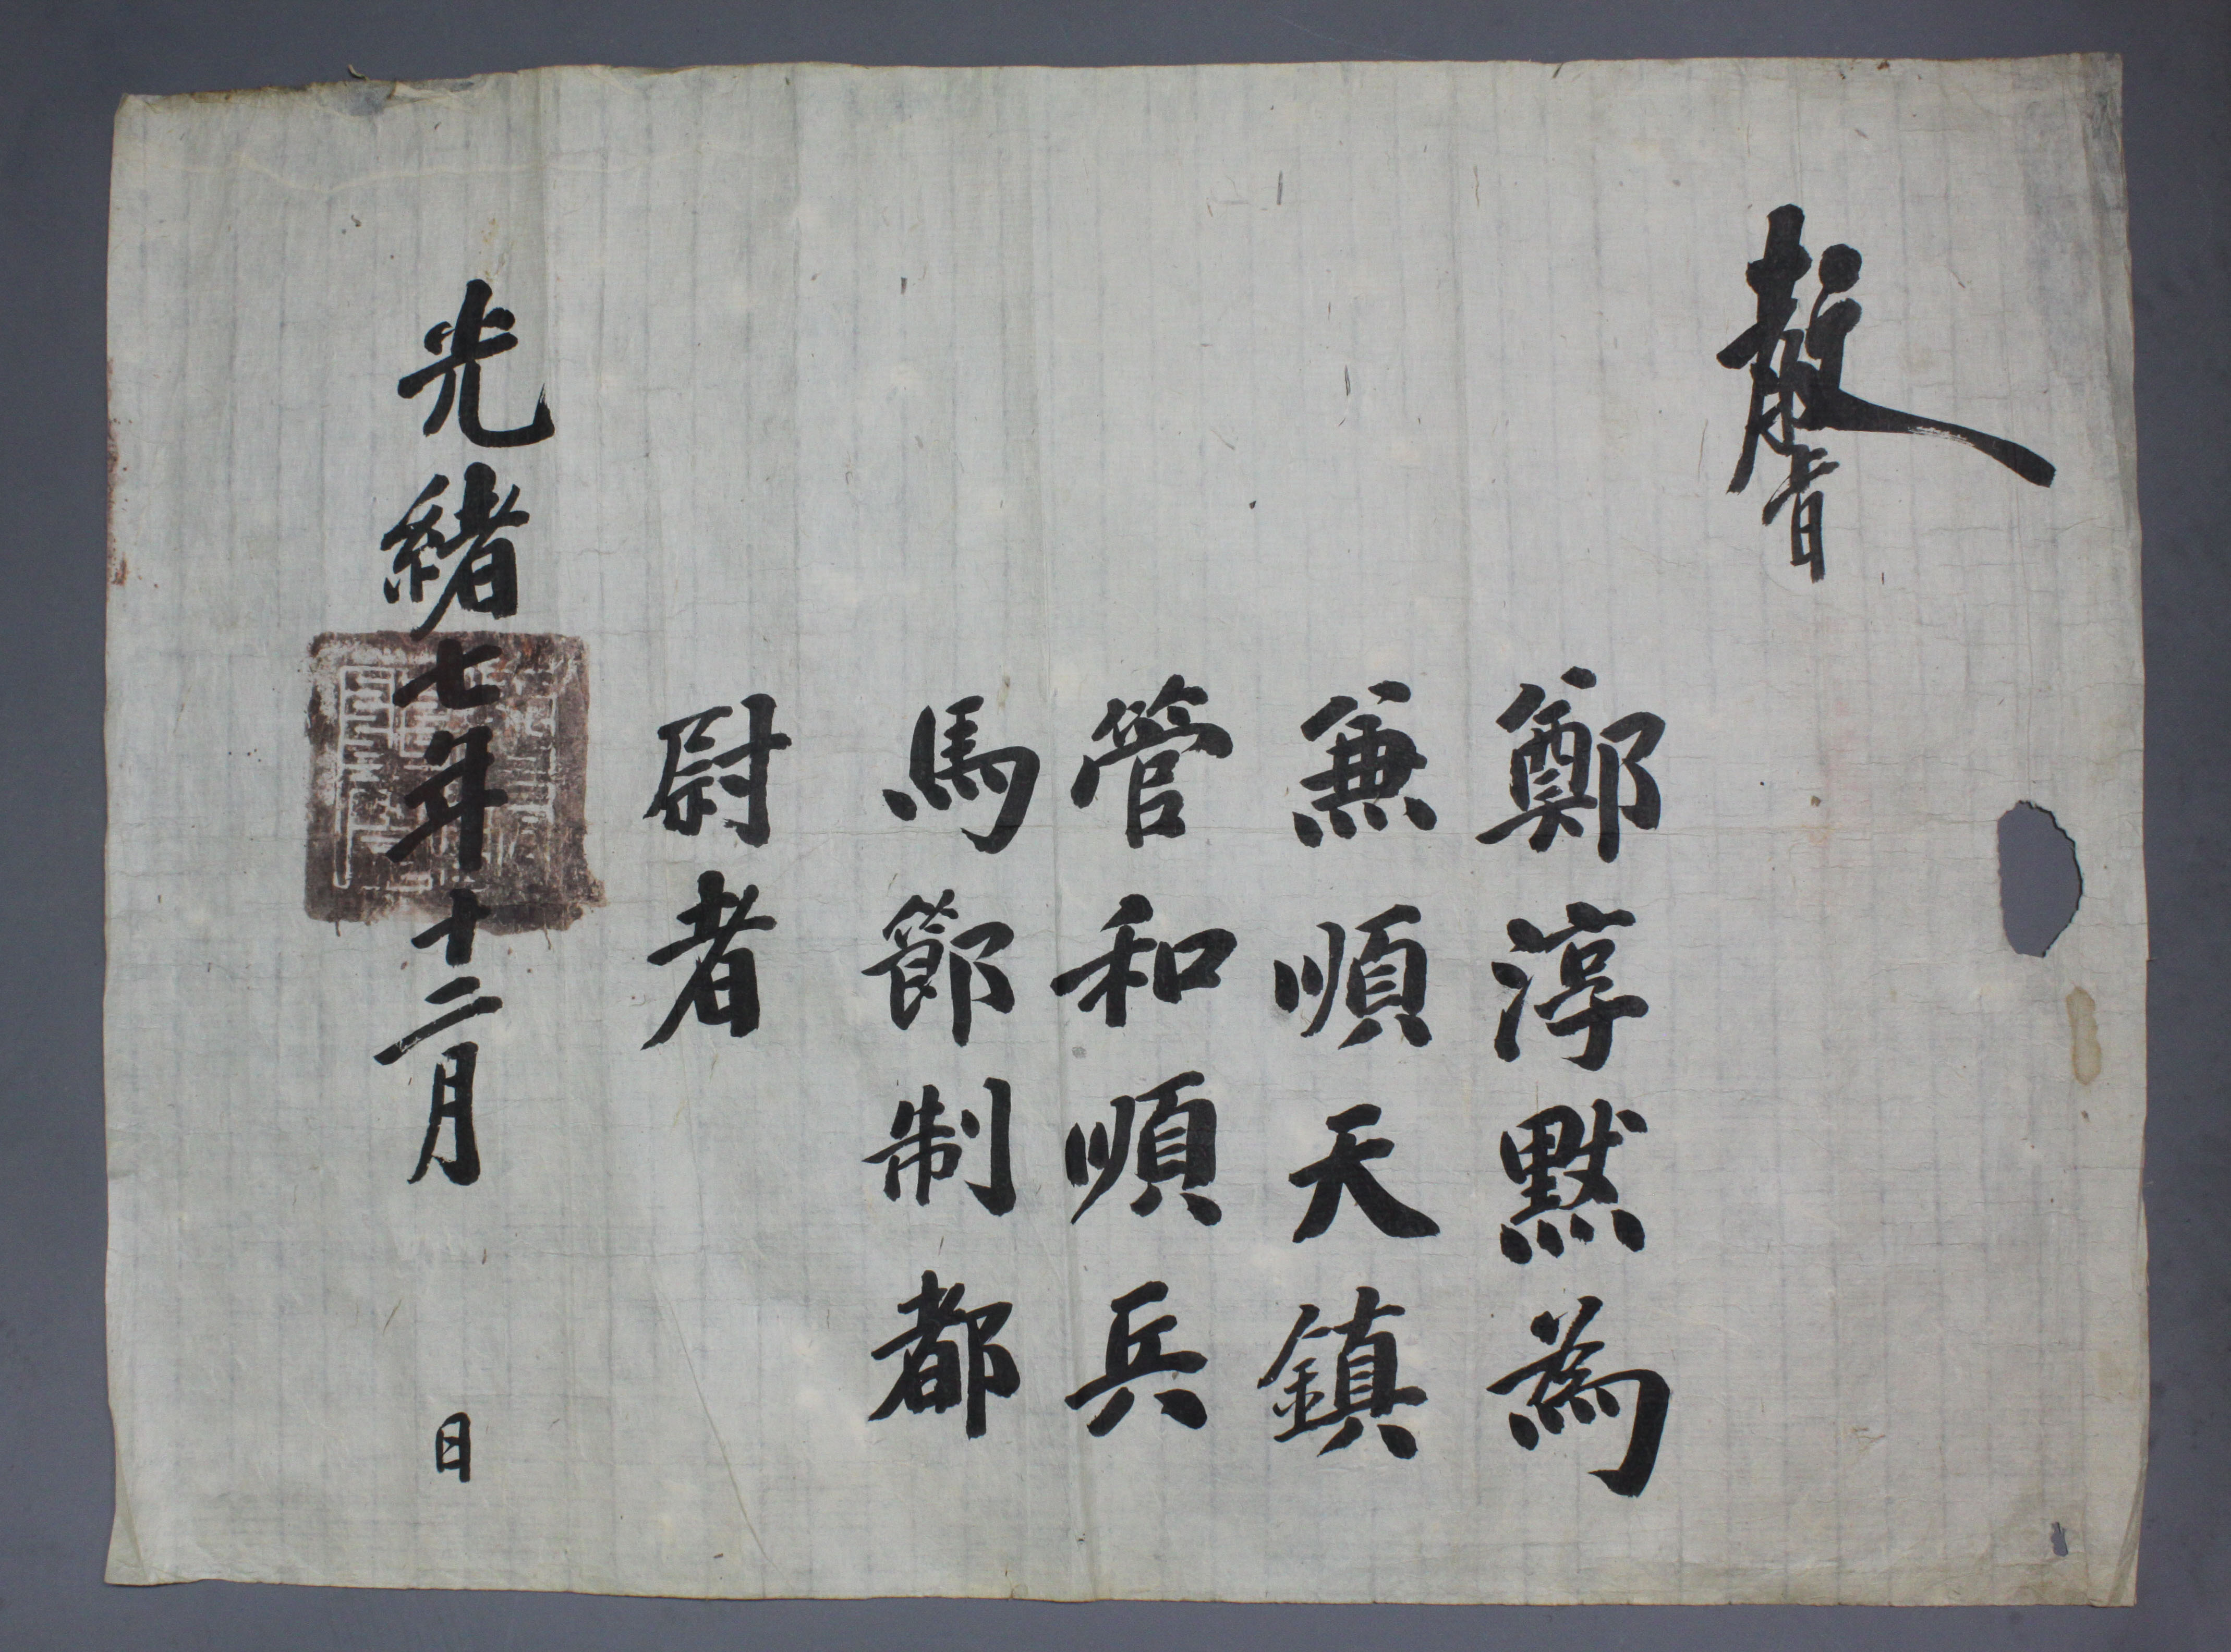 敎旨
鄭淳黙為
兼順天鎮
管和順兵
馬節制都
尉者
光緒七年十二月 日